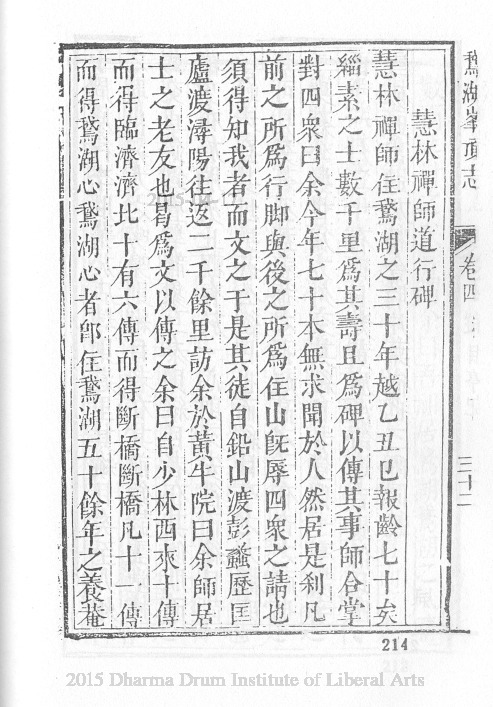 鵞湖峯頂志
卷四
三十二
慧林禪師道行碑
慧林禪師住鵞湖之三十年越乙丑已報齡七十矣
緇素之士數千里爲其壽且爲碑以傳其事師合掌
對四衆曰余今年七十本無求聞於人然居是刹凡
前之所爲行脚與後之所爲住山旣辱四衆之請也
須得知我者而文之于是其徒自鉛山渡彭蠡歷匡
廬渡潯陽往返二千餘里訪余於黃牛院曰余師居
士之老友也曷爲文以傳之余曰自少林西來十傳
而得臨濟濟比十有六傳而得斷橋斷橋凡十一傳
而得鵞湖心鵞湖心者卽住鵞湖五十餘年之養菴
214
2015 Dharma Drum Institute of Liberal Arts